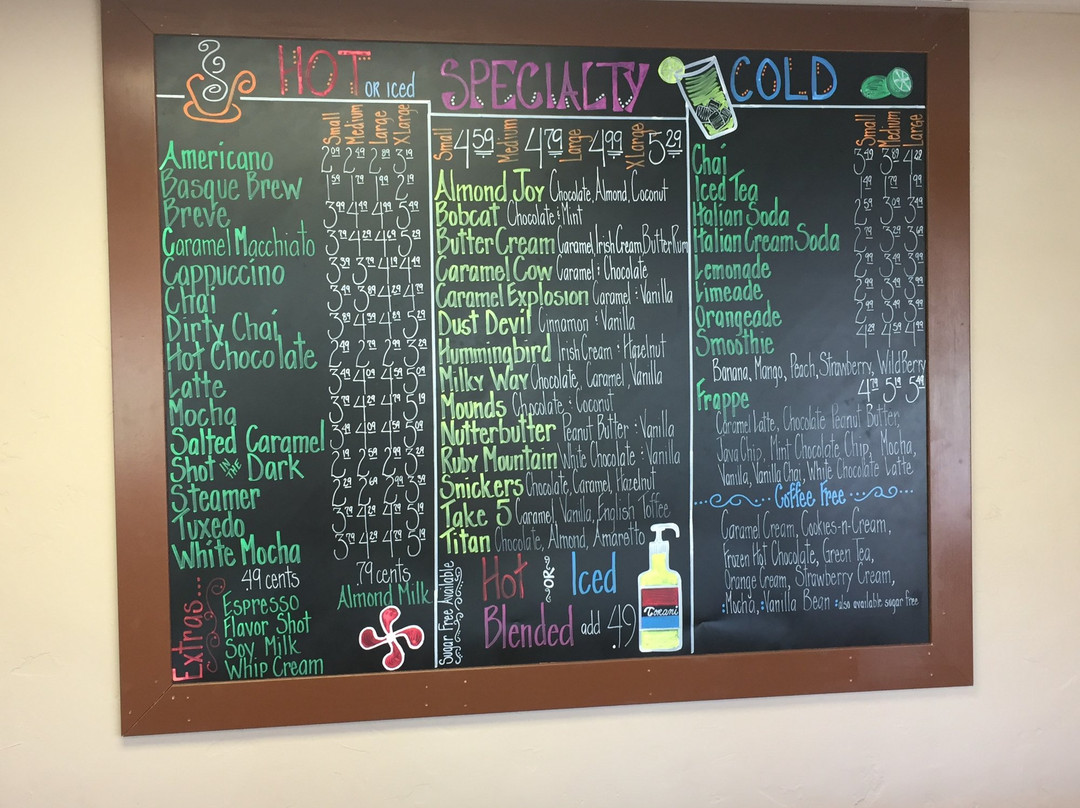 HOT OR ICED
Small Medium Large X Large
Americano 2.09 2.49 2.89 3.19
Basque Brew 1.59 1.79 1.99 2.19
Breve 3.99 4.49 4.99 5.49
Caramel Macchiato 3.79 4.29 4.69 5.29
Cappuccino 3.59 3.79 4.19 4.49
Chai 3.49 3.89 4.29 4.79
Dirty Chai 3.89 4.39 4.89 5.29
Hot Chocolate 2.49 2.79 2.99 3.29
Latte 3.49 4.09 4.59 5.09
Mocha 3.79 4.29 4.79
Salted Caramel 3.49 4.09 4.59 5.09
Shot IN THE Dark 2.19 2.59 2.99 3.39
Steamer 2.29 2.69 2.99
Tuxedo 3.79 4.29 4.79 5.19
White Mocha 3.79 4.29 4.79 5.19
Extras...
.49 cents
Espresso
Flavor Shot
Soy Milk
Whip Cream
.79 cents
Almond Milk
SPECIALTY
Small 4.59 Medium 4.79 Large 4.99 X Large 5.29
Almond Joy Chocolate, Almond, Coconut
Bobcat Chocolate & Mint
Butter Cream Caramel, Irish Cream, Butter Rum
Caramel Cow Caramel & Chocolate
Caramel Explosion Caramel & Vanilla
Dust Devil Cinnamon & Vanilla
Hummingbird Irish Cream & Hazelnut
Milky Way Chocolate, Caramel, Vanilla
Mounds Chocolate & Coconut
Nutterbutter Peanut Butter & Vanilla
Ruby Mountain White Chocolate & Vanilla
Snickers Chocolate, Caramel, Hazelnut
Take 5 Caramel, Vanilla, English Toffee
Titan Chocolate, Almond, Amaretto
Sugar Free Available
Hot OR Iced
Blended add .49
Torani
COLD
Small Medium Large
Chai 3.49 3.89 4.29
Iced Tea 1.49 1.79 1.99
Italian Soda 2.59 3.09 3.49
Italian Cream Soda 2.79 3.29 3.69
Lemonade 2.99 3.49 3.99
Limeade 2.99 3.49 3.99
Orangeade 2.99 3.49 3.99
Smoothie 4.29 4.59 4.99
Banana, Mango, Peach, Strawberry, Wild Berry
Frappe 4.79 5.19 5.49
Caramel Latte, Chocolate Peanut Butter,
Java Chip, Mint Chocolate Chip, Mocha,
Vanilla, Vanilla Chai, White Chocolate Latte
Coffee Free
Caramel Cream, Cookies-n-Cream,
Frozen Hot Chocolate, Green Tea,
Orange Cream, Strawberry Cream,
:Mocha, :Vanilla Bean :also available sugar free